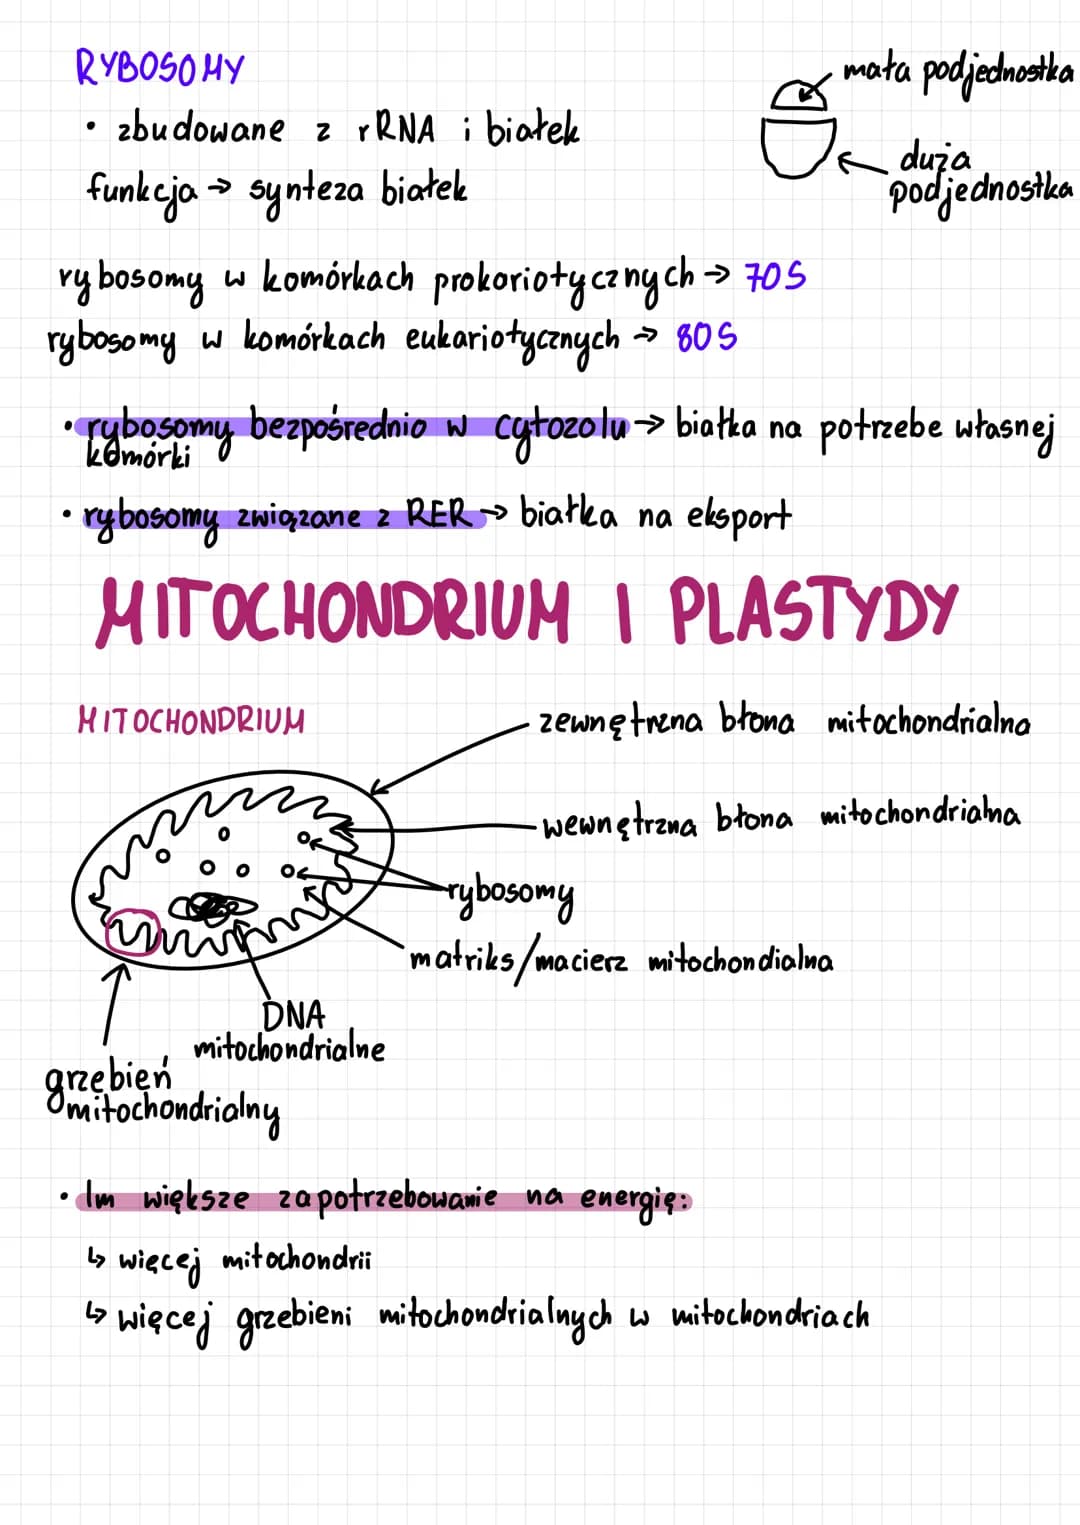 RYBOSOMY
mała podjednostka
• zbudowane z rRNA i białek
duża
podjednostka
funkcja → synteza białek
rybosomy w komórkach prokoriotycznych → 70S
rybosomy w komórkach eukariotycznych → 80S
• rybosomy bezpośrednio w cytozolu → białka na potrzebe własnej
komórki
• rybosomy związane z RER → białka na eksport
MITOCHONDRIUM I PLASTYDY
MITOCHONDRIUM
zewnętrzna błona mitochondrialna
wewnętrzna błona mitochondrialna
rybosomy
matriks/macierz mitochondialna
DNA
mitochondrialne
grzebień
mitochondrialny
• Im większe zapotrzebowanie na energię:
↳ więcej mitochondrii
↳ więcej grzebieni mitochondrialnych w mitochondriach